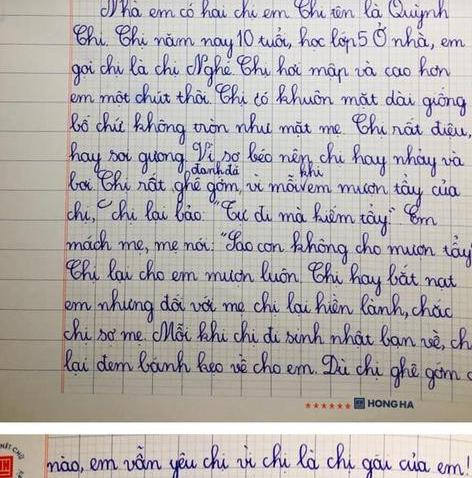 Nhà em có hai chị em. Chị tên là Quỳnh
Chi. Chị năm nay 10 tuổi, học lớp 5. Ở nhà, em
gọi chị là chị Nghé. Chị hơi mập và cao hơn
em một chút thôi. Chị có khuôn mặt dài giống
bố chứ không tròn như mặt mẹ. Chị rất điệu,
hay soi gương. Vì sợ béo nên chị hay nhảy và
đanh đá khi
bơi. Chị rất ghê gớm, vì mỗi em mượn tẩy của
chị, chị lại bảo: "Tự đi mà kiếm tẩy". Em
mách mẹ, mẹ nói: "Sao con không cho mượn tẩy
Chị lại cho em mượn luôn. Chị hay bắt nạt
em nhưng đối với mẹ chị lại hiền lành, chắc
chị sợ mẹ. Mỗi khi chị đi sinh nhật bạn về, ch
lại đem bánh kẹo về cho em. Dù chị ghê gớm
HONG HA
nào, em vẫn yêu chị vì chị là chị gái của em!